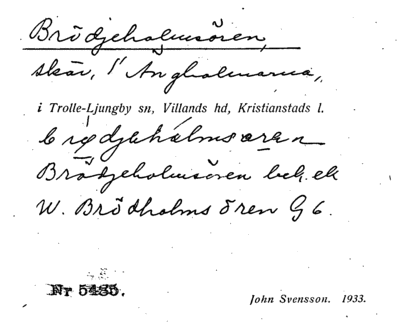 Brödjeholmsören,
skär, i Ängholmarna,
i Trolle-Ljungby sn, Villands hd, Kristianstads l.
Brödjeholmsören bek. ek
W. Brödholms ören G 6.
Nr 5435.
John Svensson. 1933.